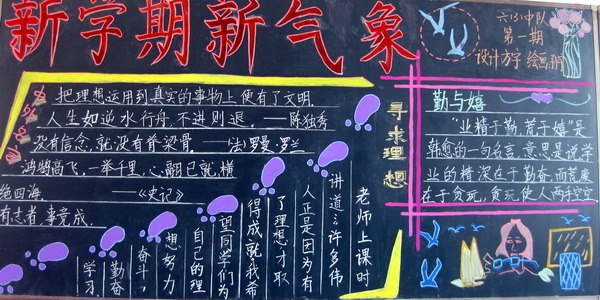 新学期新气象
六(3)中队
第一期
把理想运用到真实的事物上便有了文明.
人生如逆水行舟,不进则退。——陈独秀
没有信念,就没有脊梁骨.——(法)罗曼·罗兰
鸿鹄高飞,一举千里,羽翮已就,横
绝四海.——《史记》
有志者事竟成.
寻求理想
老师上课时
讲道:许多伟
人正是因为有
了理想,才取
得成就,我希
望同学们为
自己的理
想,努力
奋斗,
勤奋
学习.
勤与嬉
“业精于勤,荒于嬉”是
韩愈的一句名言,意思是说学
业的精深在于勤奋,而荒废
在于贪玩,贪玩使人两手空空.